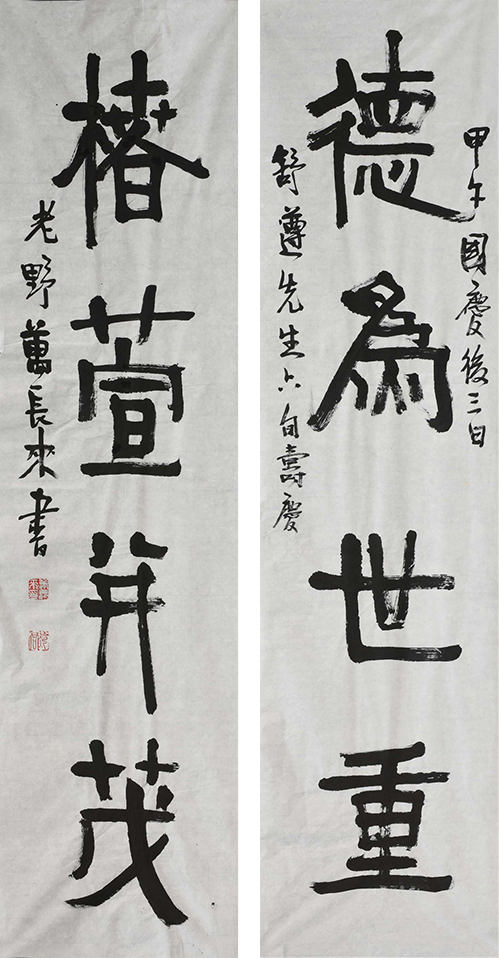 甲午國慶後三日
德爲世重
舒遵先生六旬壽慶
椿萱并茂
老野萬長來書